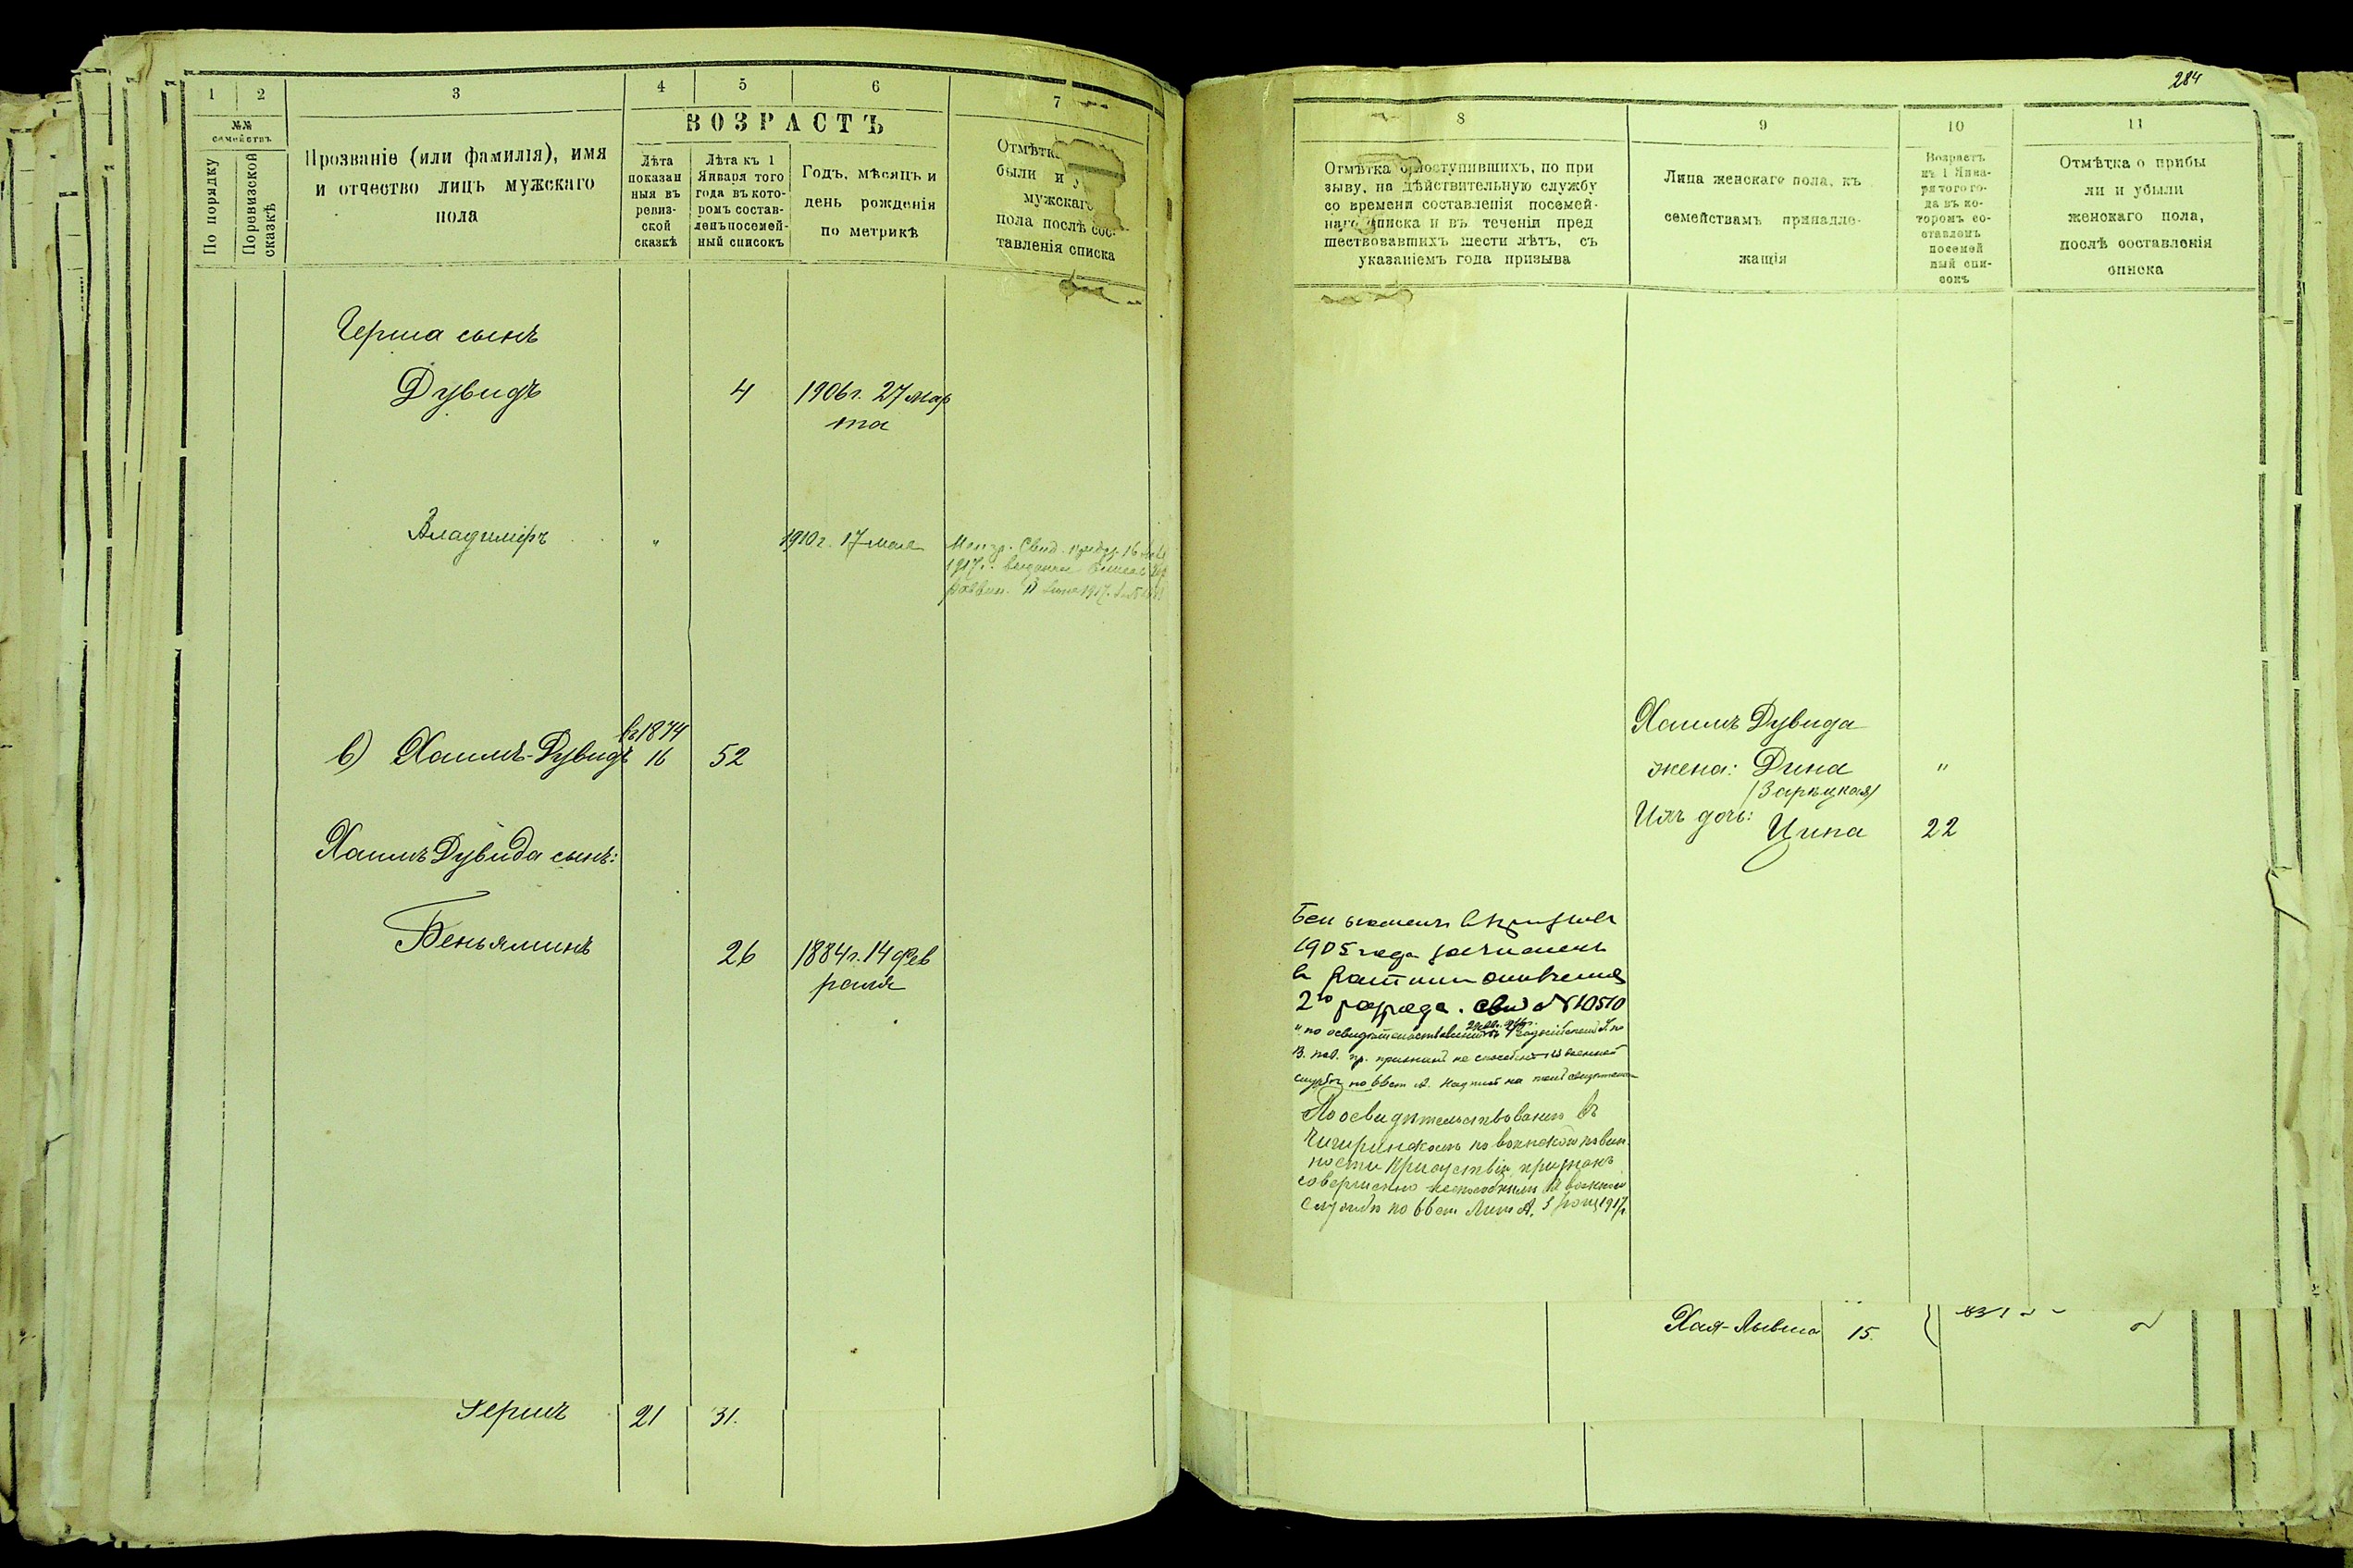 1 2 3 4 5 6 7
№№ семействъ
По порядку
По ревизской сказкѣ
Прозваніе (или фамилія), имя
и отчество лицъ мужскаго
пола
ВОЗРАСТЪ
Лѣта
показан
ныя въ
ревиз-
ской
сказкѣ
Лѣта къ 1
Января того
года въ кото-
ромъ состав-
ленъ посемей-
ный списокъ
Годъ, мѣсяцъ и
день рожденія
по метрикѣ
Отмѣтка
были и у
мужскаго
пола послѣ сос-
тавленія списка
Герша сынъ
Дувидъ 4 1906 г. 27 мар
та
Владиміръ " 1910 г. 17 мая
1917 г.
въ 1874
в) Хаимъ-Дувидъ 16 52
Хаимъ Дувида сынъ:
Беньяминъ 26 1884 г. 14 фев
раля
Гершъ 21 31.
284
8 9 10 11
Отмѣтка о поступившихъ, по при
зыву, на дѣйствительную службу
со времени составленія посемей-
наго списка и въ теченіи пред
шествовавшихъ шести лѣтъ, съ
указаніемъ года призыва
Лица женскаго пола, къ
семействамъ принадле-
жащія
Возрастъ
къ 1 Янва-
ря того го-
да въ ко-
торомъ со-
ставленъ
посемей
ный спи-
сокъ
Отмѣтка о прибы
ли и убыли
женскаго пола,
послѣ составленія
списка
Хаимъ Дувида
жена: Дина "
(Зарѣцкая)
Ихъ дочь: Ципа 22
1905 года зачисленъ
въ ратники ополченія
2го разряда. Свид № 10510
службѣ по 66 ст А.
По освидѣтельствованіи въ
Чигиринскомъ по воинской повин
ности Присутствіи признанъ
совершенно неспособнымъ къ военной
службѣ по 66 ст Лит А. 1917 г.
Хая- 15.